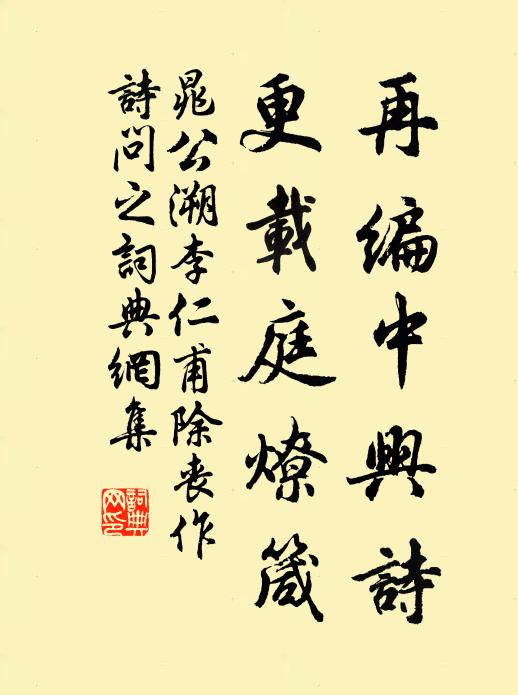 再編中興詩
更載庭燎箴
晁公溯李仁甫除丧作
詩問之詞典網集
詞典
网印